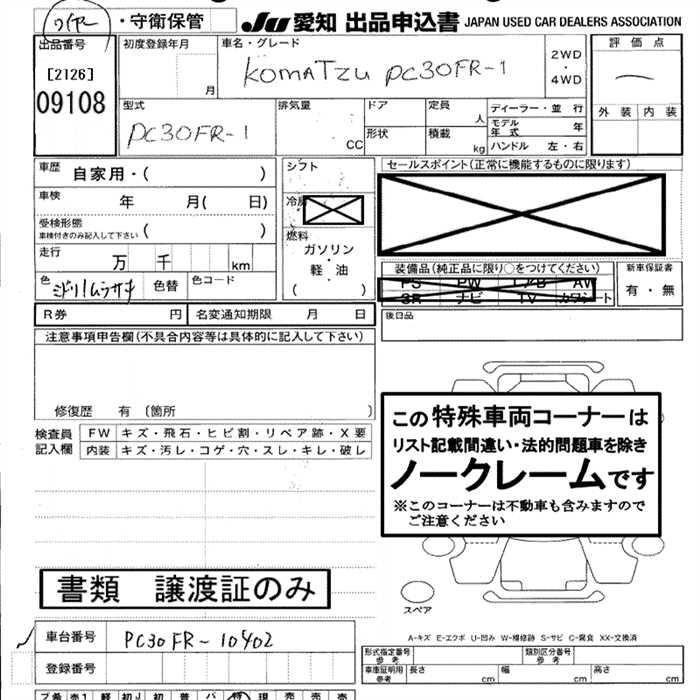 ・守衛保管
JU 愛知 出品申込書 JAPAN USED CAR DEALERS ASSOCIATION
出品番号
[2126]
09108
初度登録年月
月
車名・グレード
KOMATZU PC30FR-1
2WD
・
4WD
評価点
外装 内装
型式
PC30FR-1
排気量
CC
ドア
形状
定員
人
積載
kg
ディーラー・並行
モデル年式 年
ハンドル 左・右
車歴 自家用・( )
車検 年 月( 日)
受検形態
車検付きのみ記入して下さい ( )
走行 万 千 km
色 ミドリ/ムラサキ 色替 色コード
R券 円 名変通知期限 月 日
シフト
冷房
燃料
ガソリン
・
軽・油
( )
セールスポイント(正常に機能するものに限ります)
装備品(純正品に限り○をつけてください)
PS PW エアB AW
SR ナビ TV カワシート
新車保証書
有・無
後日品
注意事項申告欄(不具合内容等は具体的に記入して下さい)
修復歴 有 〔箇所 〕
検査員記入欄
FW キズ・飛石・ヒビ割・リペア跡・X要
内装 キズ・汚レ・コゲ・穴・スレ・キレ・破レ
この特殊車両コーナーは
リスト記載間違い・法的問題車を除き
ノークレームです
※このコーナーは不動車も含みますので
ご注意ください
スペア
書類 譲渡証のみ
車台番号 PC30FR-10402
登録番号
A-キズ E-エクボ U-凹み W-補修跡 S-サビ C-腐食 XX-交換済
形式指定番号 参考
類別区分番号 参考
車庫証明用 参考 長さ cm 幅 cm 高さ cm